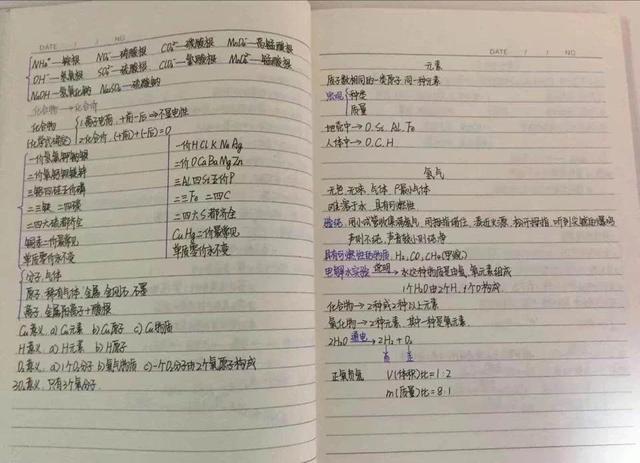 DATE / / NO
NH₄⁺—铵根 NO₃⁻—硝酸根 CO₃²⁻—碳酸根 MnO₄⁻—高锰酸根
OH⁻—氢氧根 SO₄²⁻—硫酸根 ClO₃⁻—氯酸根 MnO₄²⁻—锰酸根
NaOH—氢氧化钠 Na₂SO₄—硫酸钠
化合物→化合价
化合物 1.离子电荷,+前-后→不显电性
2.化合价,(+前)+(-后)=0
一价氢氯钾钠银
二价氧钙钡镁锌
三铝四硅五价磷
二三铁 二四碳
二四六硫都齐全
铜汞二价最常见
单质零价永不变
一价H Cl K Na Ag
二价O Ca Ba Mg Zn
三Al四Si五价P
二三Fe 二四C
二四六S都齐全
Cu Hg二价最常见
单质零价永不变
分子:气体
原子:稀有气体.金属.金刚石.石墨
离子:金属阳离子+酸根
Cu意义:a) Cu元素 b) Cu原子 c) Cu物质
H意义:a) H元素 b) H原子
O₂意义:a) 1个O₂分子 b) 氧气物质 c) 一个O₂分子由2个氧原子构成
3O₂意义:只有3个氧分子.
DATE / / NO
元素
质子数相同的一类原子 同一种元素
种类
质量
地壳中→O. Si. AL. Fe
人体中→O. C. H
氢气
无色.无味.气体.密度小气体
难溶于水.具有可燃性
验纯:用小试管收集满氢气,用拇指堵住,靠近火源,松开拇指,听到尖锐的爆鸣
声则不纯,声音较小则纯净
具有可燃性的物质:H₂, CO, CH₄(甲烷)
电解水实验 说明→水这种物质是由氢.氧元素组成
1个H₂O由2个H,1个O构成
化合物→2种或2种以上元素
氧化物→2种元素,其中一种是氧元素
2H₂O 通电→ 2H₂ + O₂
正氧负氢 V(体积)比=1:2
m(质量)比=8:1